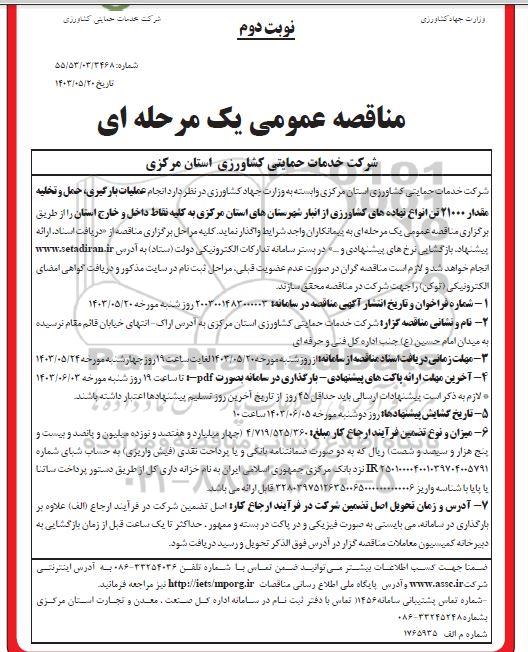 وزارت جهادکشاورزی
شرکت خدمات حمایتی کشاورزی
نوبت دوم
شماره: ۵۵/۵۳/۰۳/۳۴۶۸
تاریخ ۱۴۰۳/۰۵/۲۰
مناقصه عمومی یک مرحله ای
شرکت خدمات حمایتی کشاورزی استان مرکزی
شرکت خدمات حمایتی کشاورزی استان مرکزی وابسته به وزارت جهاد کشاورزی در نظر دارد انجام عملیات بارگیری، حمل و تخلیه
مقدار ۲۱۰۰۰ تن انواع نهاده های کشاورزی از انبار شهرستان های استان مرکزی به کلیه نقاط داخل و خارج استان را از طریق
برگزاری مناقصه عمومی یک مرحله‌ای به پیمانکاران واجد شرایط واگذار نماید. کلیه مراحل برگزاری مناقصه از «دریافت اسناد، ارائه
پیشنهاد، بازگشایی نرخ های پیشنهادی و ...» در بستر سامانه تدارکات الکترونیکی دولت (ستاد) به آدرس www.setadiran.ir
انجام خواهد شد و لازم است مناقصه گران در صورت عدم عضویت قبلی، مراحل ثبت نام در سایت مذکور و دریافت گواهی امضای
الکترونیکی (توکن) را جهت شرکت در مناقصه محقق سازند.
۱- شماره فراخوان و تاریخ انتشار آگهی مناقصه در سامانه: ۲۰۰۳۰۰۱۴۸۳۰۰۰۰۰۳ روز شنبه مورخه ۱۴۰۳/۰۵/۲۰
۲- نام و نشانی مناقصه گزار: شرکت خدمات حمایتی کشاورزی استان مرکزی به آدرس اراک- انتهای خیابان قائم مقام نرسیده
به میدان امام حسین (ع) جنب اداره کل فنی و حرفه ای
۳- مهلت زمانی دریافت اسناد مناقصه از سامانه: از روز شنبه مورخه ۱۴۰۳/۰۵/۲۰ لغایت ساعت ۱۹ روز چهارشنبه مورخه ۱۴۰۳/۰۵/۲۴
۴- آخرین مهلت ارائه پاکت های پیشنهادی- بارگذاری در سامانه بصورت pdf: تا ساعت ۱۹ روز شنبه مورخه ۱۴۰۳/۰۶/۰۳
* لازم به ذکر است پیشنهادات ارسالی باید حداقل ۴۵ روز از تاریخ آخرین روز تسلیم پیشنهادها اعتبار داشته باشند.
۵- تاریخ گشایش پیشنهادها: روز دوشنبه مورخه ۱۴۰۳/۰۶/۰۵ ساعت ۱۰
۶- میزان و نوع تضمین فرآیند ارجاع کار مبلغ: ۴/۷۱۹/۵۲۵/۳۶۰ (چهار میلیارد و هفتصد و نوزده میلیون و پانصد و بیست و
پنج هزار و سیصد و شصت) ریال که به دو صورت ضمانتنامه بانکی و یا پرداخت نقدی (فیش واریزی) به حساب شبای شماره
نزد بانک مرکزی جمهوری اسلامی ایران به نام خزانه داری کل از طریق دستور پرداخت ساتنا
یا پایا با شناسه واریز ارائه می باشد.
۷- آدرس و زمان تحویل اصل تضمین شرکت در فرآیند ارجاع کار: اصل تضمین شرکت در فرآیند ارجاع (الف) علاوه بر
بارگذاری در سامانه، می بایستی به صورت فیزیکی و در پاکت در بسته و ممهور، حداکثر تا یک ساعت قبل از زمان بازگشایی به
دبیرخانه کمیسیون معاملات مناقصه گزار در آدرس فوق الذکر تحویل و رسید دریافت شود.
ضمنا جهت کسب اطلاعات بیشتر می‌توانید ضمن تماس با شماره تلفن ۳۳۲۵۴۰۳۶-۰۸۶ به آدرس اینترنتی
شرکت www.assc.ir وآدرس پایگاه ملی اطلاع رسانی مناقصات http://iets/mporg.ir نیز مراجعه فرمائید.
-شماره تماس پشتیبانی سامانه ۱۴۵۶ تماس با دفتر ثبت نام در سامانه اداره کل صنعت، معدن و تجارت استان مرکزی
بشماره ۳۳۲۴۵۲۴۸-۰۸۶
شماره م الف ۱۷۶۵۹۳۵